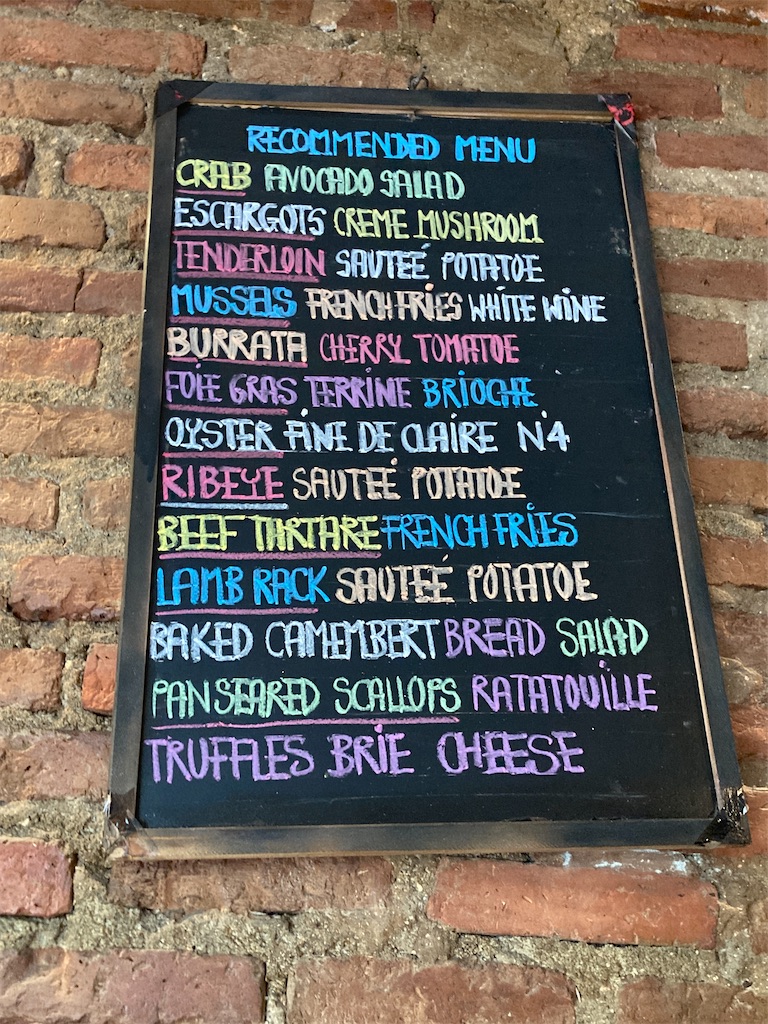 RECOMMENDED MENU
CRAB AVOCADO SALAD
ESCARGOTS CREME MUSHROOM
TENDERLOIN SAUTEÉ POTATOE
MUSSELS FRENCH FRIES WHITE WINE
BURRATA CHERRY TOMATOE
FOIE GRAS TERRINE BRIOCHE
OYSTER FINE DE CLAIRE N°4
RIBEYE SAUTEÉ POTATOE
BEEF TARTARE FRENCH FRIES
LAMB RACK SAUTEÉ POTATOE
BAKED CAMEMBERT BREAD SALAD
PAN SEARED SCALLOPS RATATOUILLE
TRUFFLES BRIE CHEESE